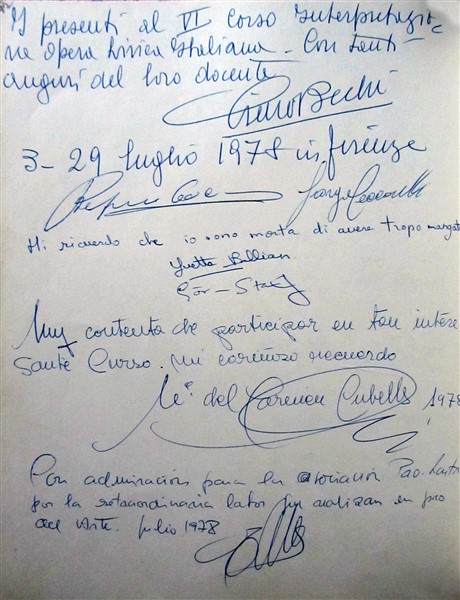 I presenti al VI corso Interpretazio
ne Opera Lirica Italiana - Con tanti
auguri del loro docente
Gino Bechi
3 - 29 luglio 1978 in Firenze
Mi ricuerdo che io sono morta di avere tropo mangiato
Yvetta
Muy contenta de participar en tan intere
sante Curso. Mi cariñoso recuerdo
Mª del Carmen Cubells 1978
Con admiración para la asociación
por la extraordinaria labor que realizan en pro
del Arte. Julio 1978